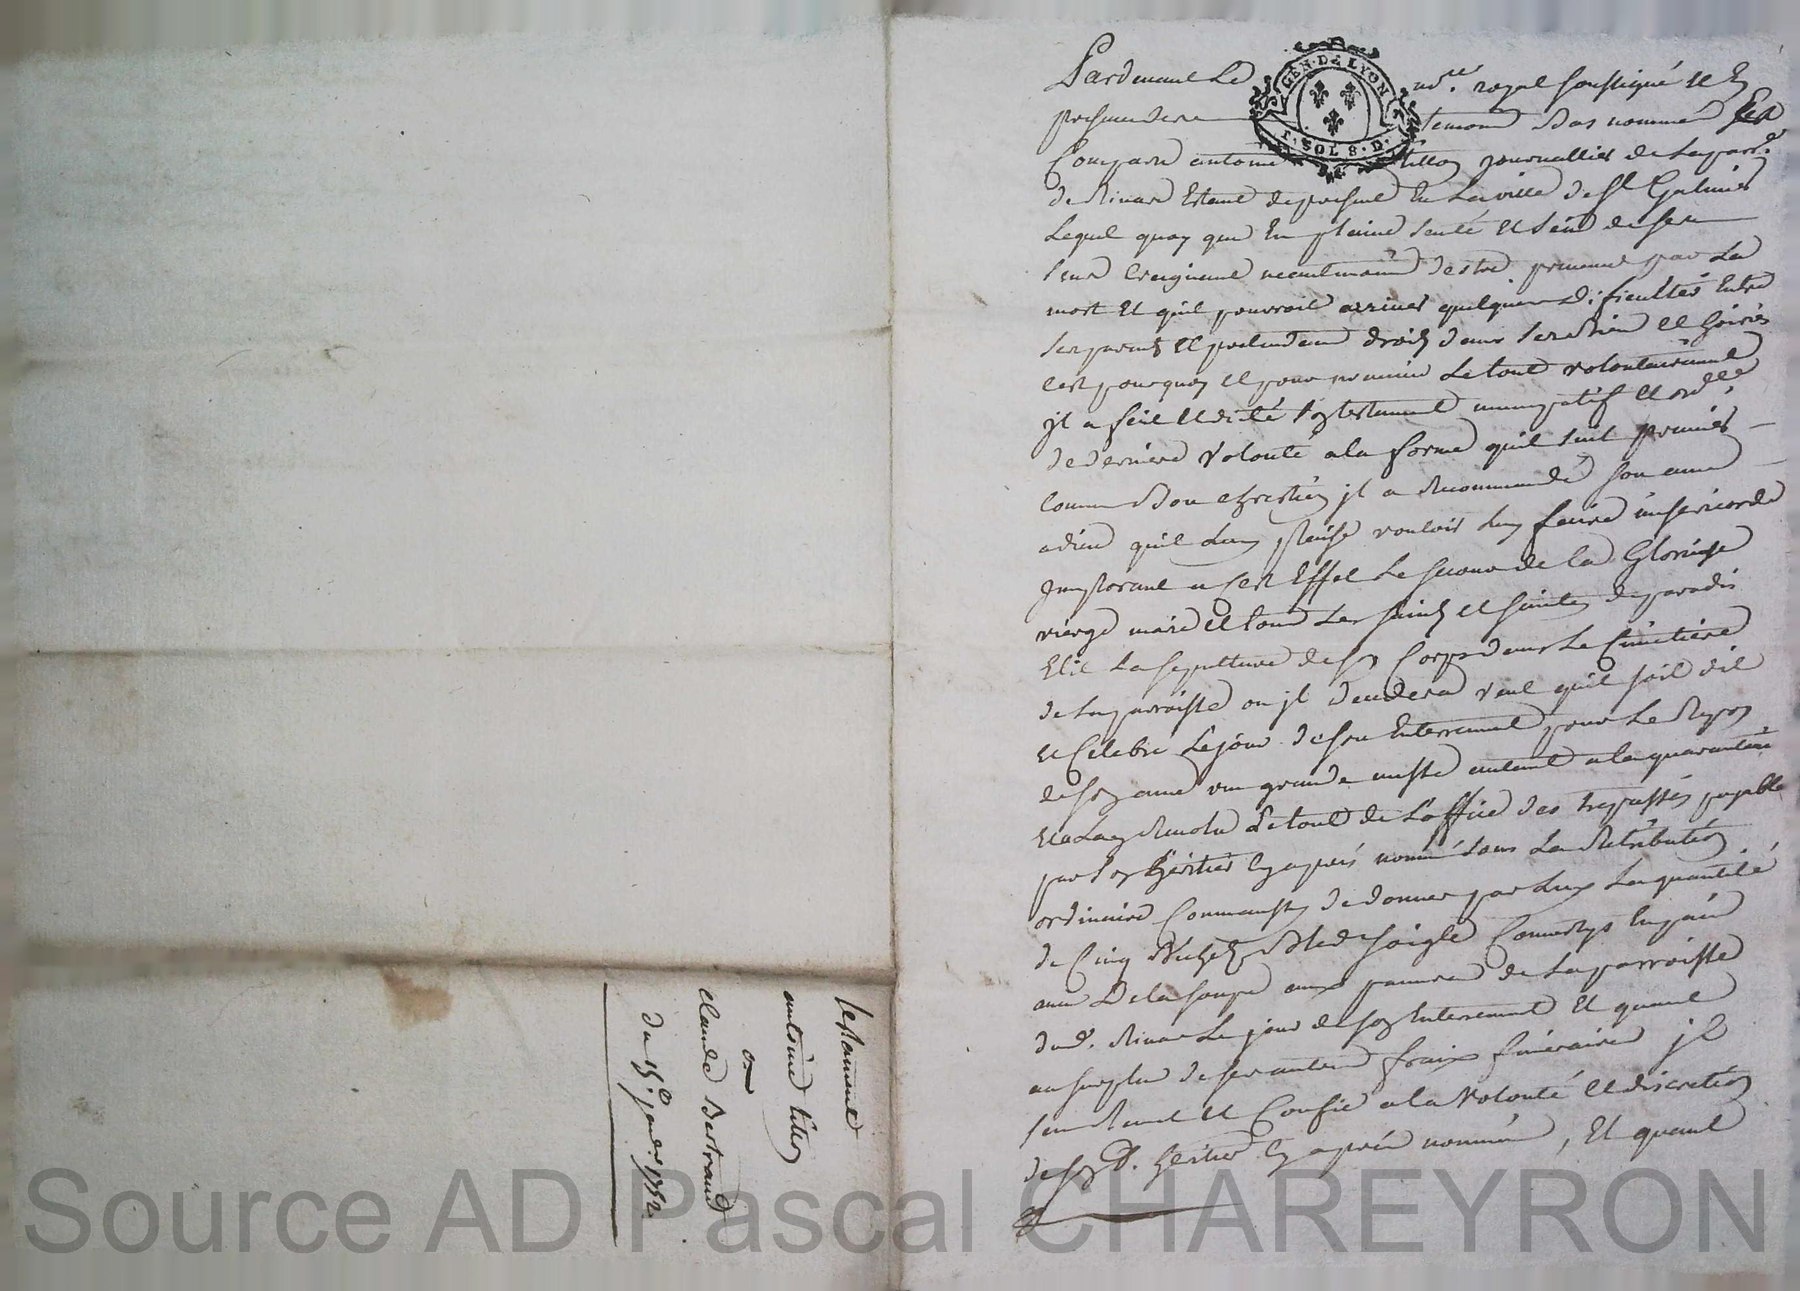 testament
antoine tillon
a
claude Bertrand
du 15e. janvier 1752
GEN. DE LYON
SOLS. D.
Pardevant Le no.re royal soussigné et En
presence de temoins Bas nommés Est
Comparu antoine tillon journallier de La parr.e
de Rivas Estant de present En La ville de St Galmier
Lequel quoy que En plaine santé et sain de ses
sens Craignant neantmoins d'estre prevenu par La
mort Et qu'il pourroit arriver quelques dificultés Entre
ses parents et pretendant droits dans ses Biens et hoiries
c'est pourquoy et pour premier Le tout volontairement
jl a fait et dicté son testament nuncupatif et ord.ce
de derniere volonté a la forme qu'il suit premier
Comme Bon chrestien jl a Recommandé son ame
a dieu qu'il Luy plaise vouloir Luy faire misericorde
jmplorant a cest Effet Le secours de la Glorieuse
vierge marie et tous Les saints et saintes de paradis
Elit La sepulture de son Corps dans Le Cimetiere
de La parroisse ou jl deccedera veut qu'il soit dit
et Celebré Le jour de son Enterrement pour Le Repos
de son ame une grande messe autant a la quarantaine
Et a L'an Revolu Le tout de L'office des trepassés payable
par son heritier Cy apres nommé sous La Retribution
ordinaire Commanst de donner par Luy La quantité
de Cinq Bichets Bled soigle Convertys En pain
avec De la soupe aux pauvres de La parroisse
dud. Rivas Le jour de son Enterrement Et quant
au surplus de ses autres fraix funeraires jl
s'en Remet et Confie a la volonté et discretion
de son d. heritier Cy apres nommé, Et quant
Source AD Pascal CHAREYRON